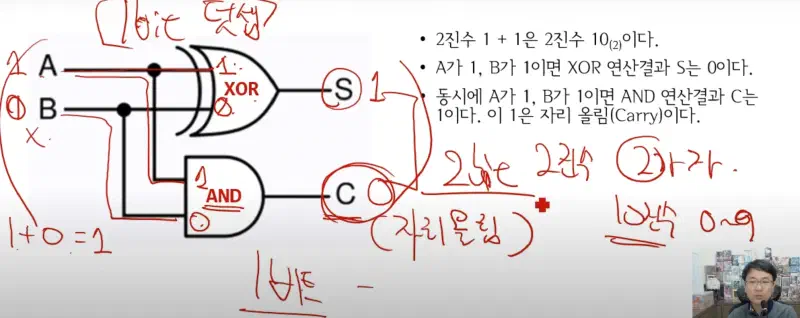 [1bit 덧셈]
1 A
0 B
x
1
0
XOR
S 1
1
0
AND
C 0
1+0=1
1비트 -
2bit
(자리올림)
2진수 2가지.
10진수 0~9
• 2진수 1 + 1은 2진수 10(2)이다.
• A가 1, B가 1이면 XOR 연산결과 S는 0이다.
• 동시에 A가 1, B가 1이면 AND 연산결과 C는
1이다. 이 1은 자리 올림(Carry)이다.